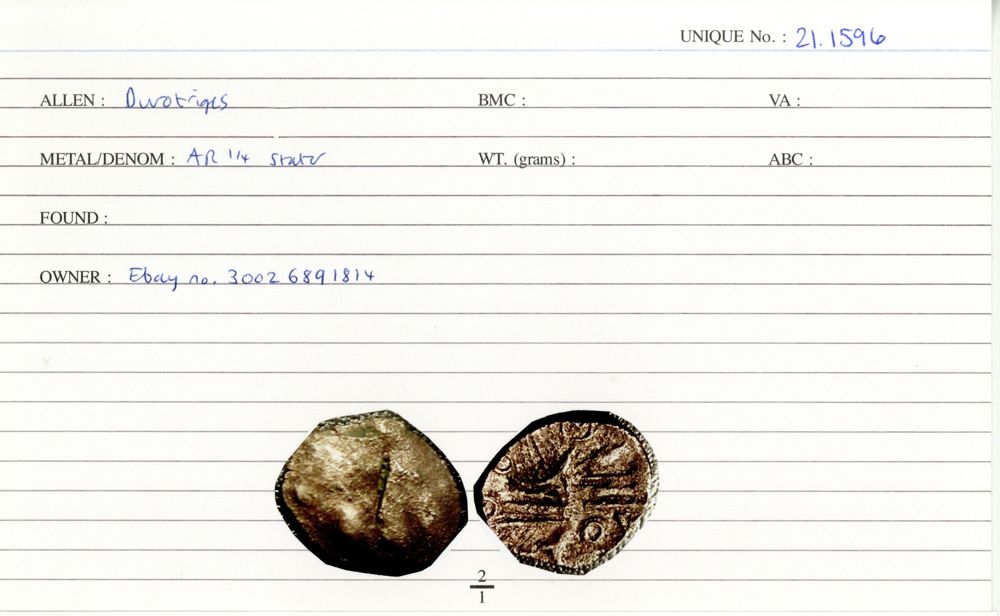 UNIQUE No. : 21.1596
ALLEN : Durotriges BMC : VA :
METAL/DENOM : AR 1/4 stater WT. (grams) : ABC :
FOUND :
OWNER : Ebay no. 30026891814
2
1